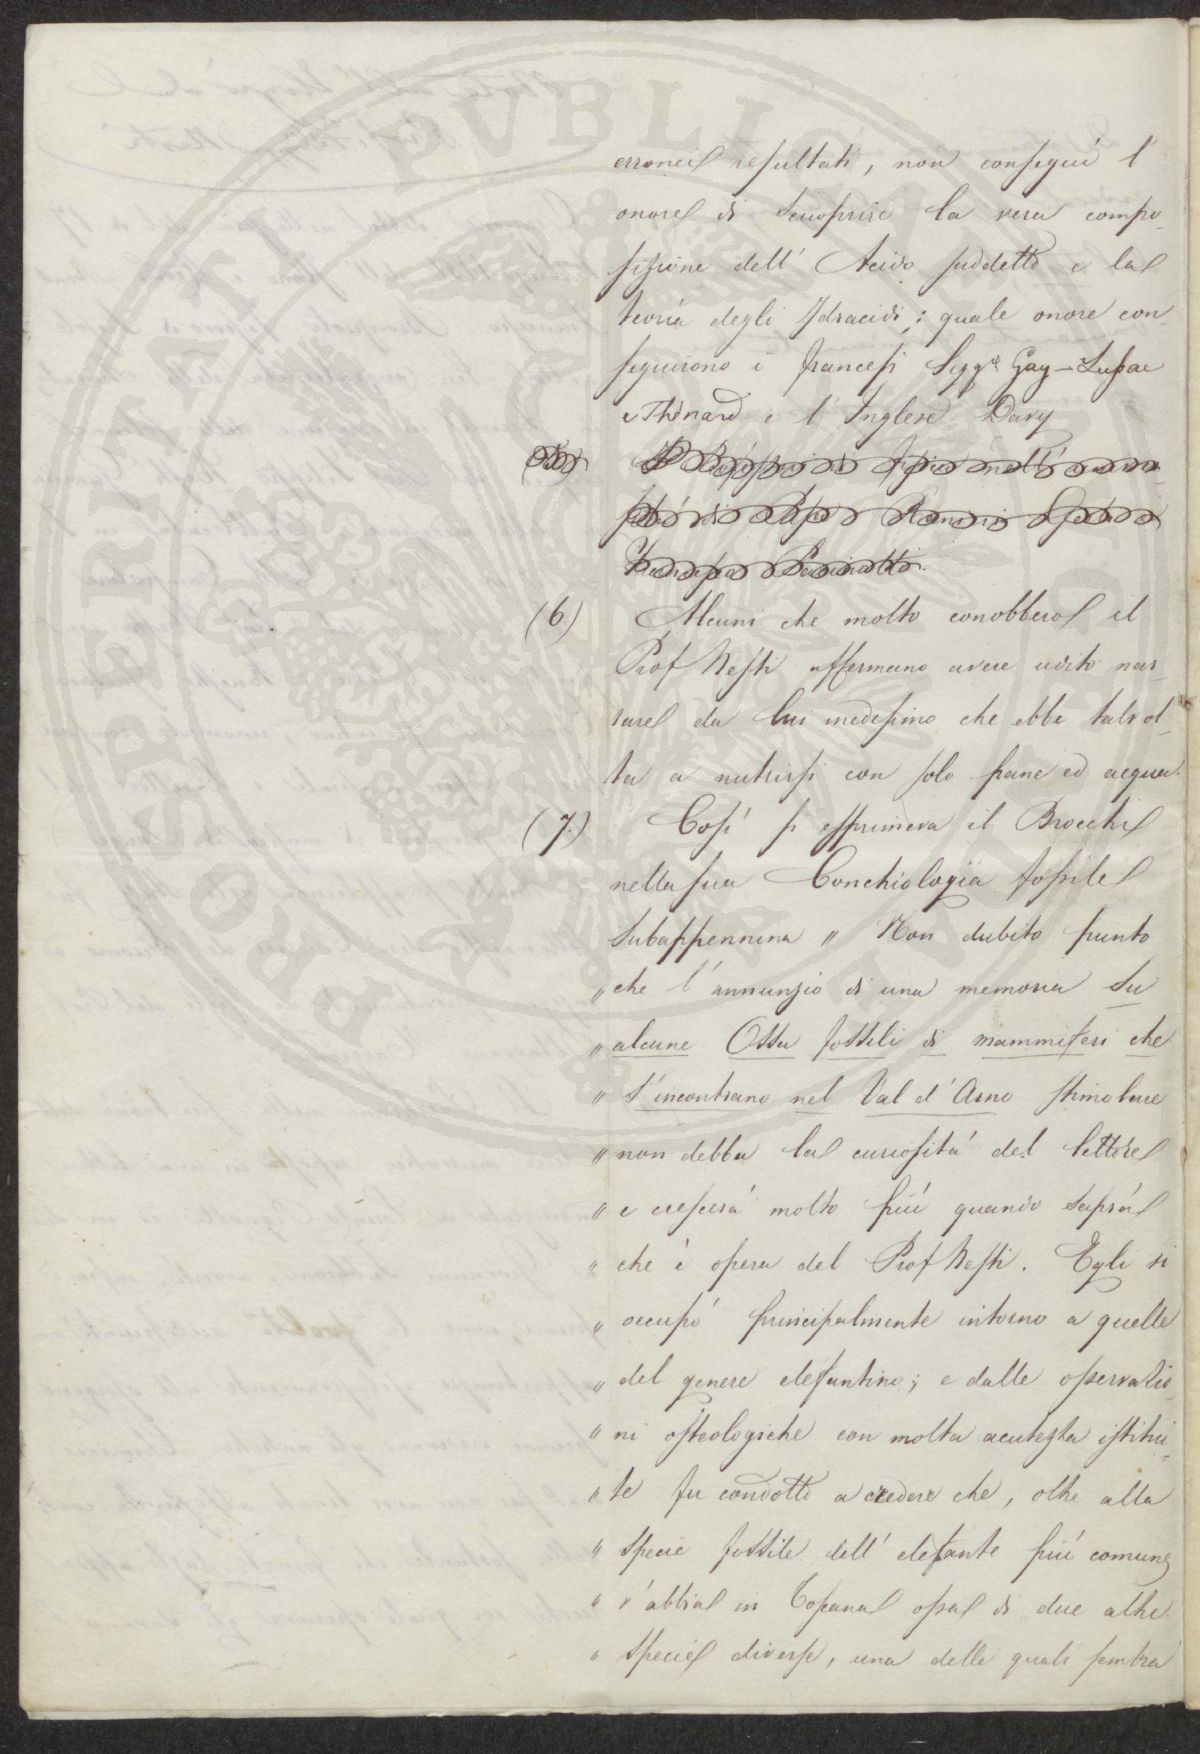 PVBLICAE
PROBITATI
erronei resultati, non conseguì l'
onore di scuoprire la vera compo-
sizione dell' Acido suddetto e la
teoria degli Idracidi; quale onore con-
seguirono i francesi Sigg.ri Gay-Lussac
e Thénard e l' Inglese Davy
(6) Alcuni che molto conobbero il
Prof Nesti affermano avere udito nar-
rare da lui medesimo che ebbe talvol-
ta a nutrirsi con solo pane ed acqua.
(7.) Così si esprimeva il Brocchi
nella sua Conchiologia fossile
Subappennina " Non dubito punto
" che l'annunzio di una memoria Su
" alcune Ossa fossili di mammiferi che
" s'incontrano nel Val d'Arno stimolare
" non debba la curiosità del lettore
" e crescerà molto più quando saprà
" che è opera del Prof Nesti. Egli si
" occupò principalmente intorno a quelle
" del genere elefantino; e dalle osservazio-
" ni osteologiche con molta acutezza istitui-
" te fu condotto a credere che, oltre alla
" specie fossile dell' elefante più comune
" v'abbia in Toscana ossa di due altre
" specie diverse, una delle quali sembra